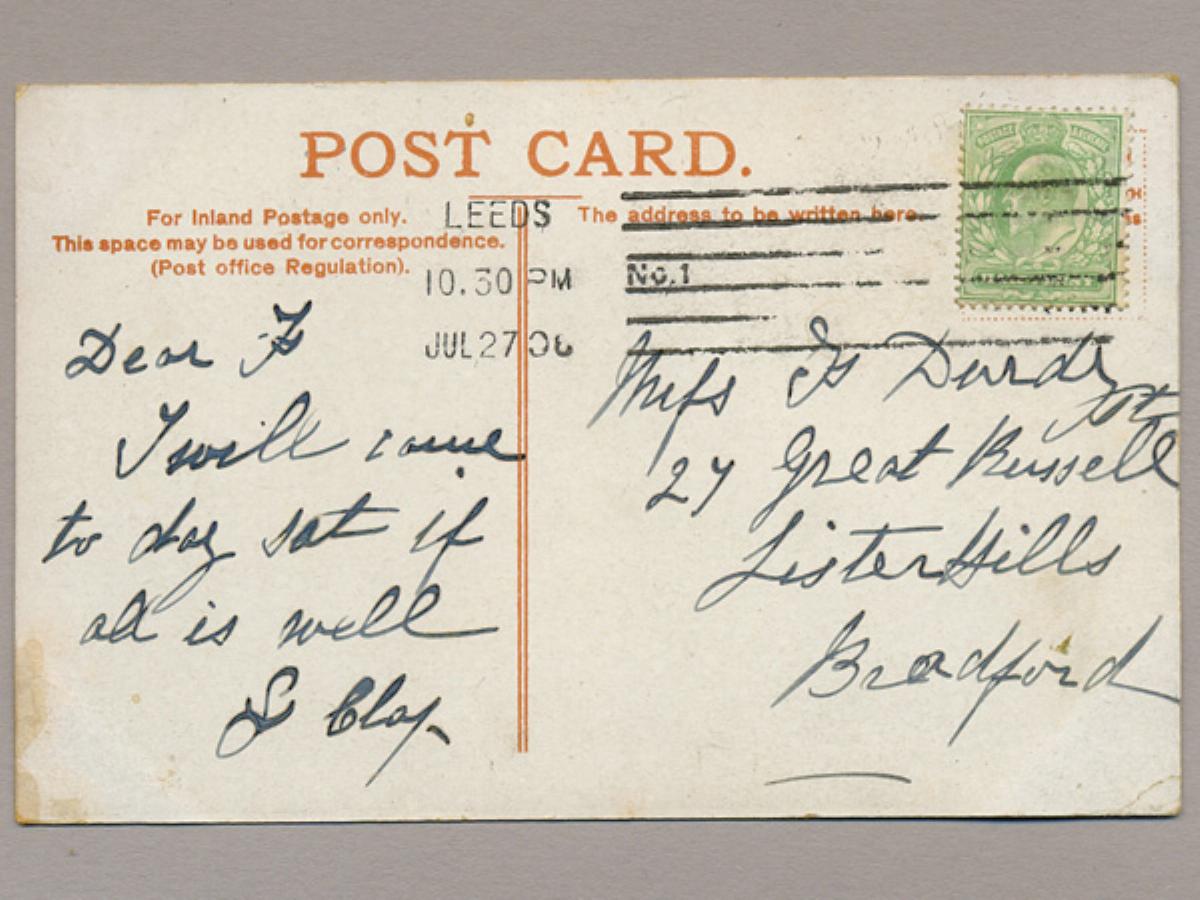 POST CARD.
For Inland Postage only.
This space may be used for correspondence.
(Post office Regulation).
The address to be written here.
LEEDS
10.30 PM
No.1
JUL 27 06
Dear F
I will come
to day sat if
all is well
S Clay
Miss F
St
27 Great Russell
Lister Hills
Bradford